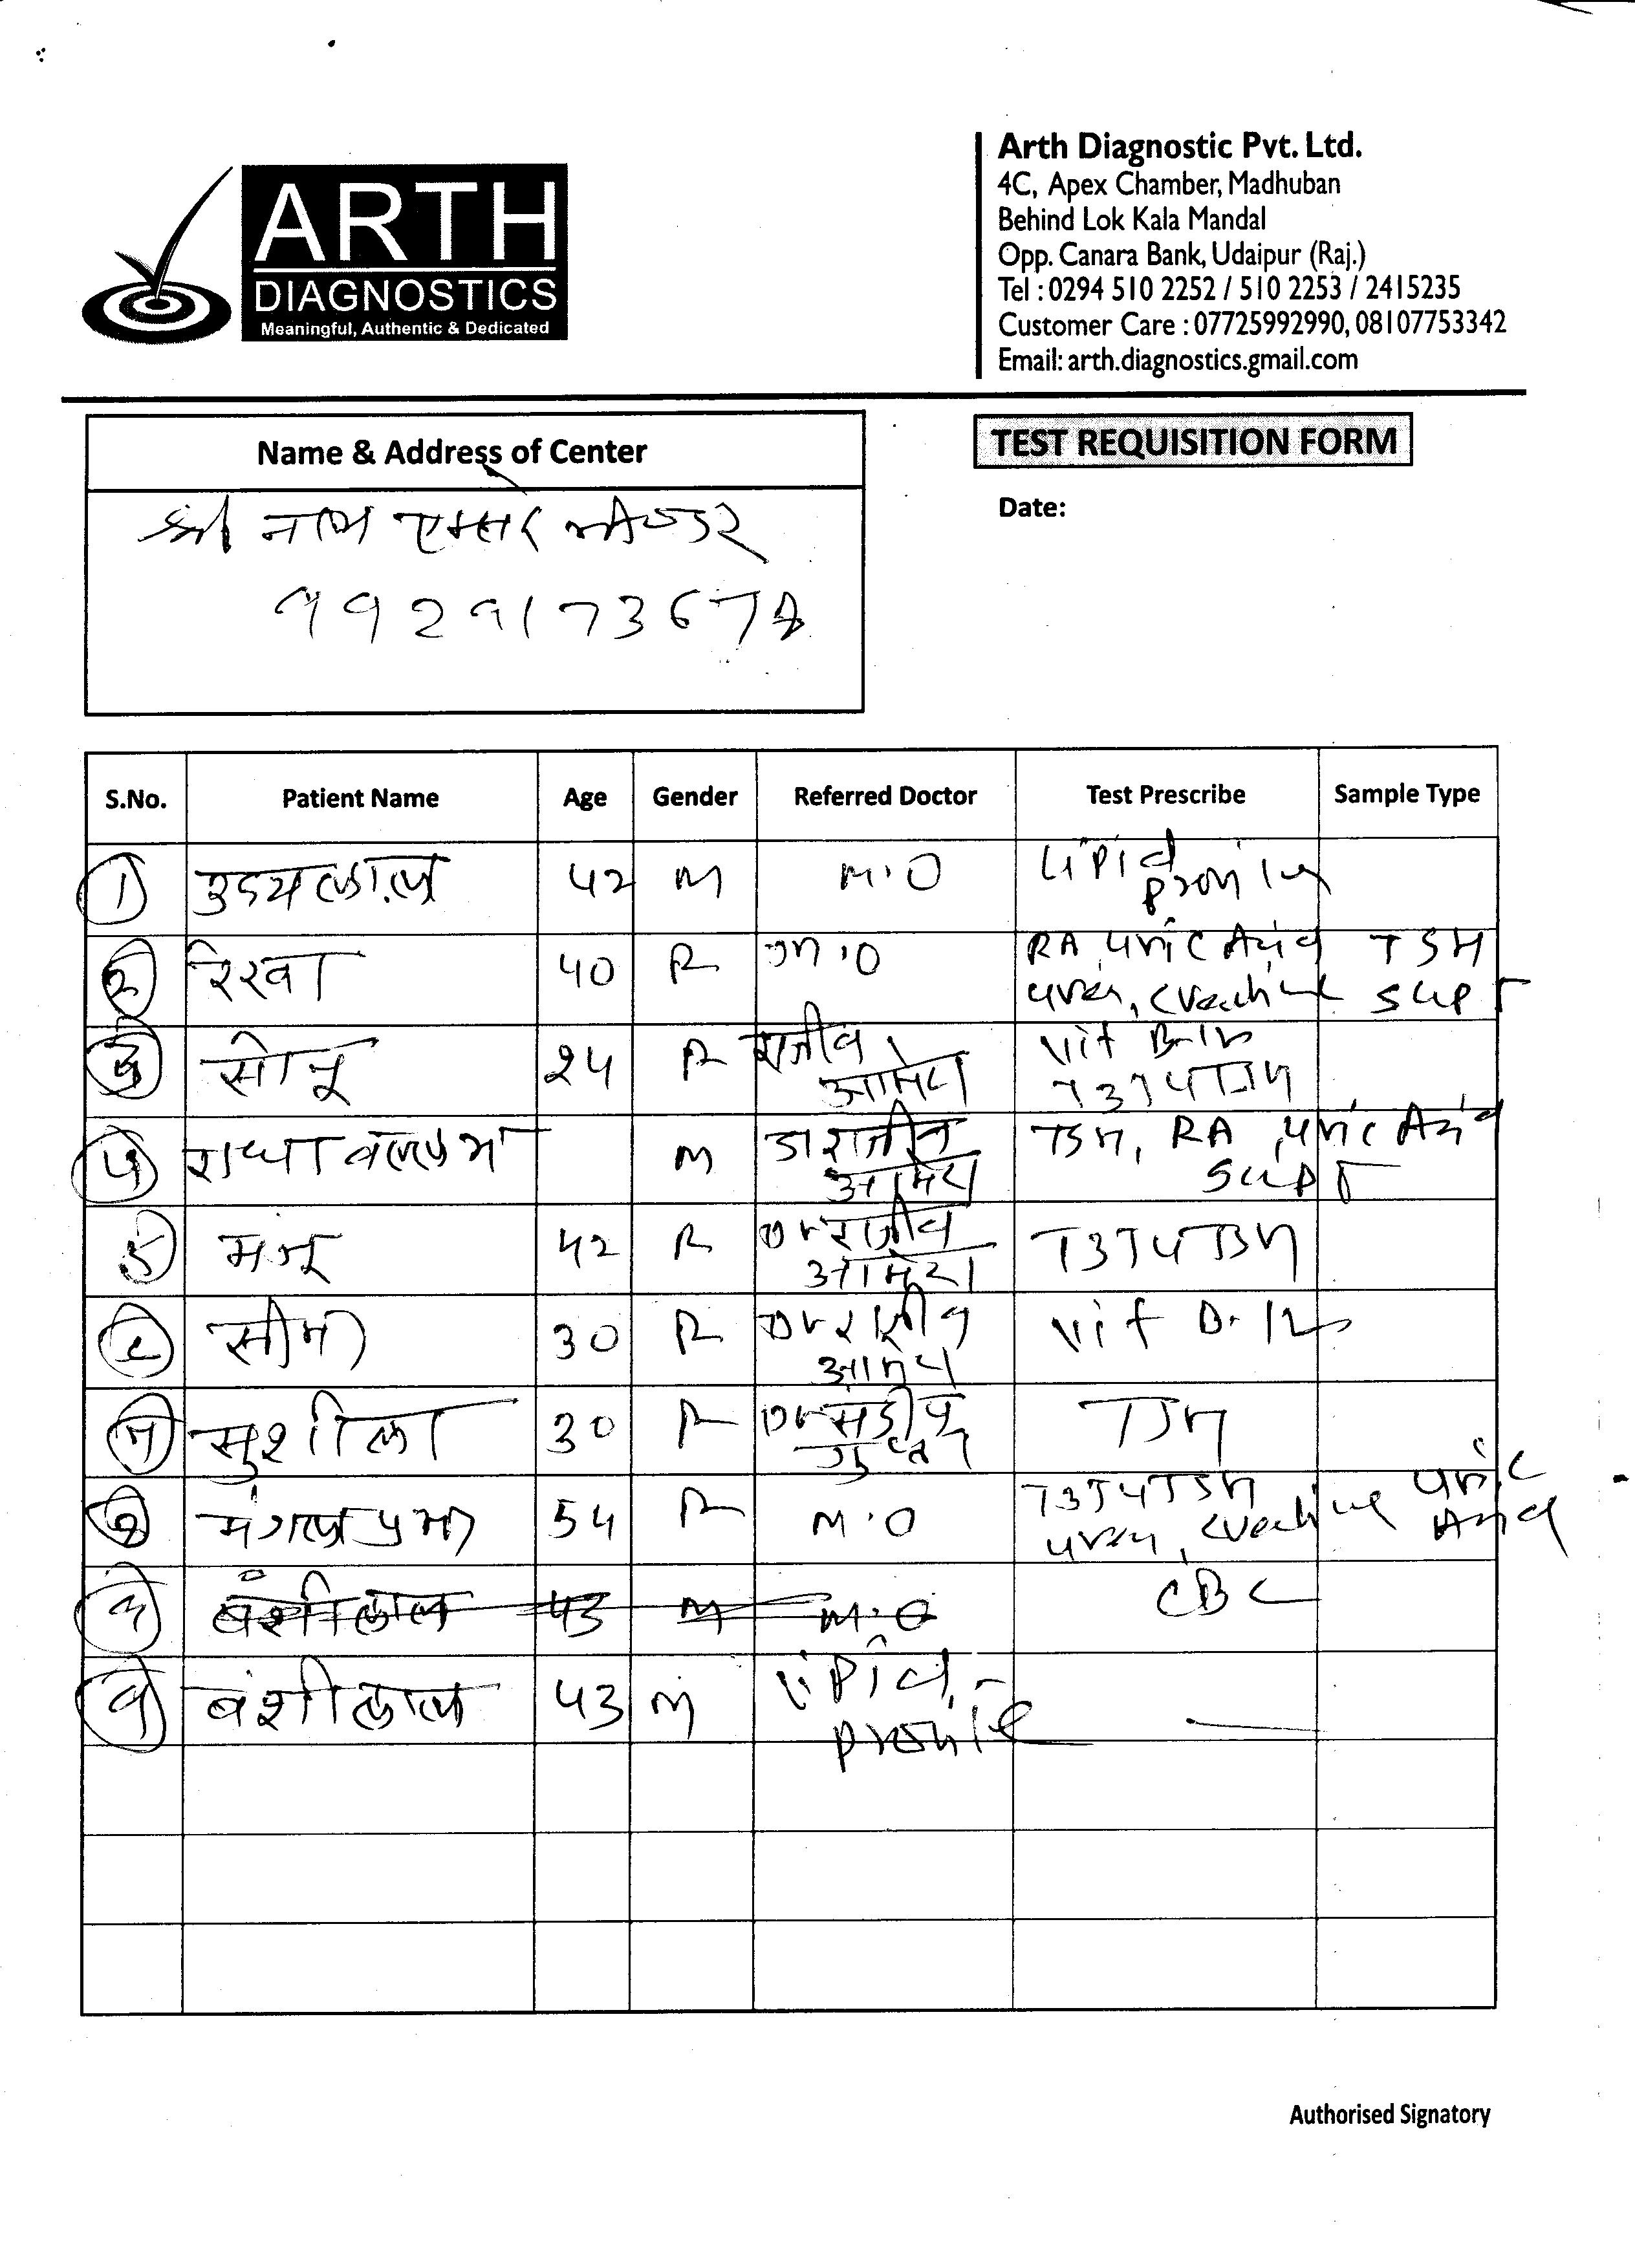 ARTH
DIAGNOSTICS
Meaningful, Authentic & Dedicated
Arth Diagnostic Pvt. Ltd.
4C, Apex Chamber, Madhuban
Behind Lok Kala Mandal
Opp. Canara Bank, Udaipur (Raj.)
Tel : 0294 510 2252 / 510 2253 / 2415235
Customer Care : 07725992990, 08107753342
Email: arth.diagnostics.gmail.com
Name & Address of Center
TEST REQUISITION FORM
Date:
श्री नाथ
992917367
S.No. Patient Name Age Gender Referred Doctor Test Prescribe Sample Type
1 उदयलाल 42 M M.O Lipid
2 40 M.O RA, Uric Acid TSH
Urea,
3 सोनू 24 राजीव Vit B-12
आमेटा T3 T4 TSH
राधा वल्लभ M डा राजीव TSH, RA, Uric Acid
आमेटा
5 मंजू 42 Dr राजीव T3 T4 TSH
आमेटा
सीमा 30 Dr Vit B-12
सुशीला 30 Dr TSH
गुप्ता
54 M.O T3 T4 TSH Uric
Urea, Acid
बंशीलाल 43 M M.O CBC
बंशीलाल 43 M Lipid
Profile
Authorised Signatory